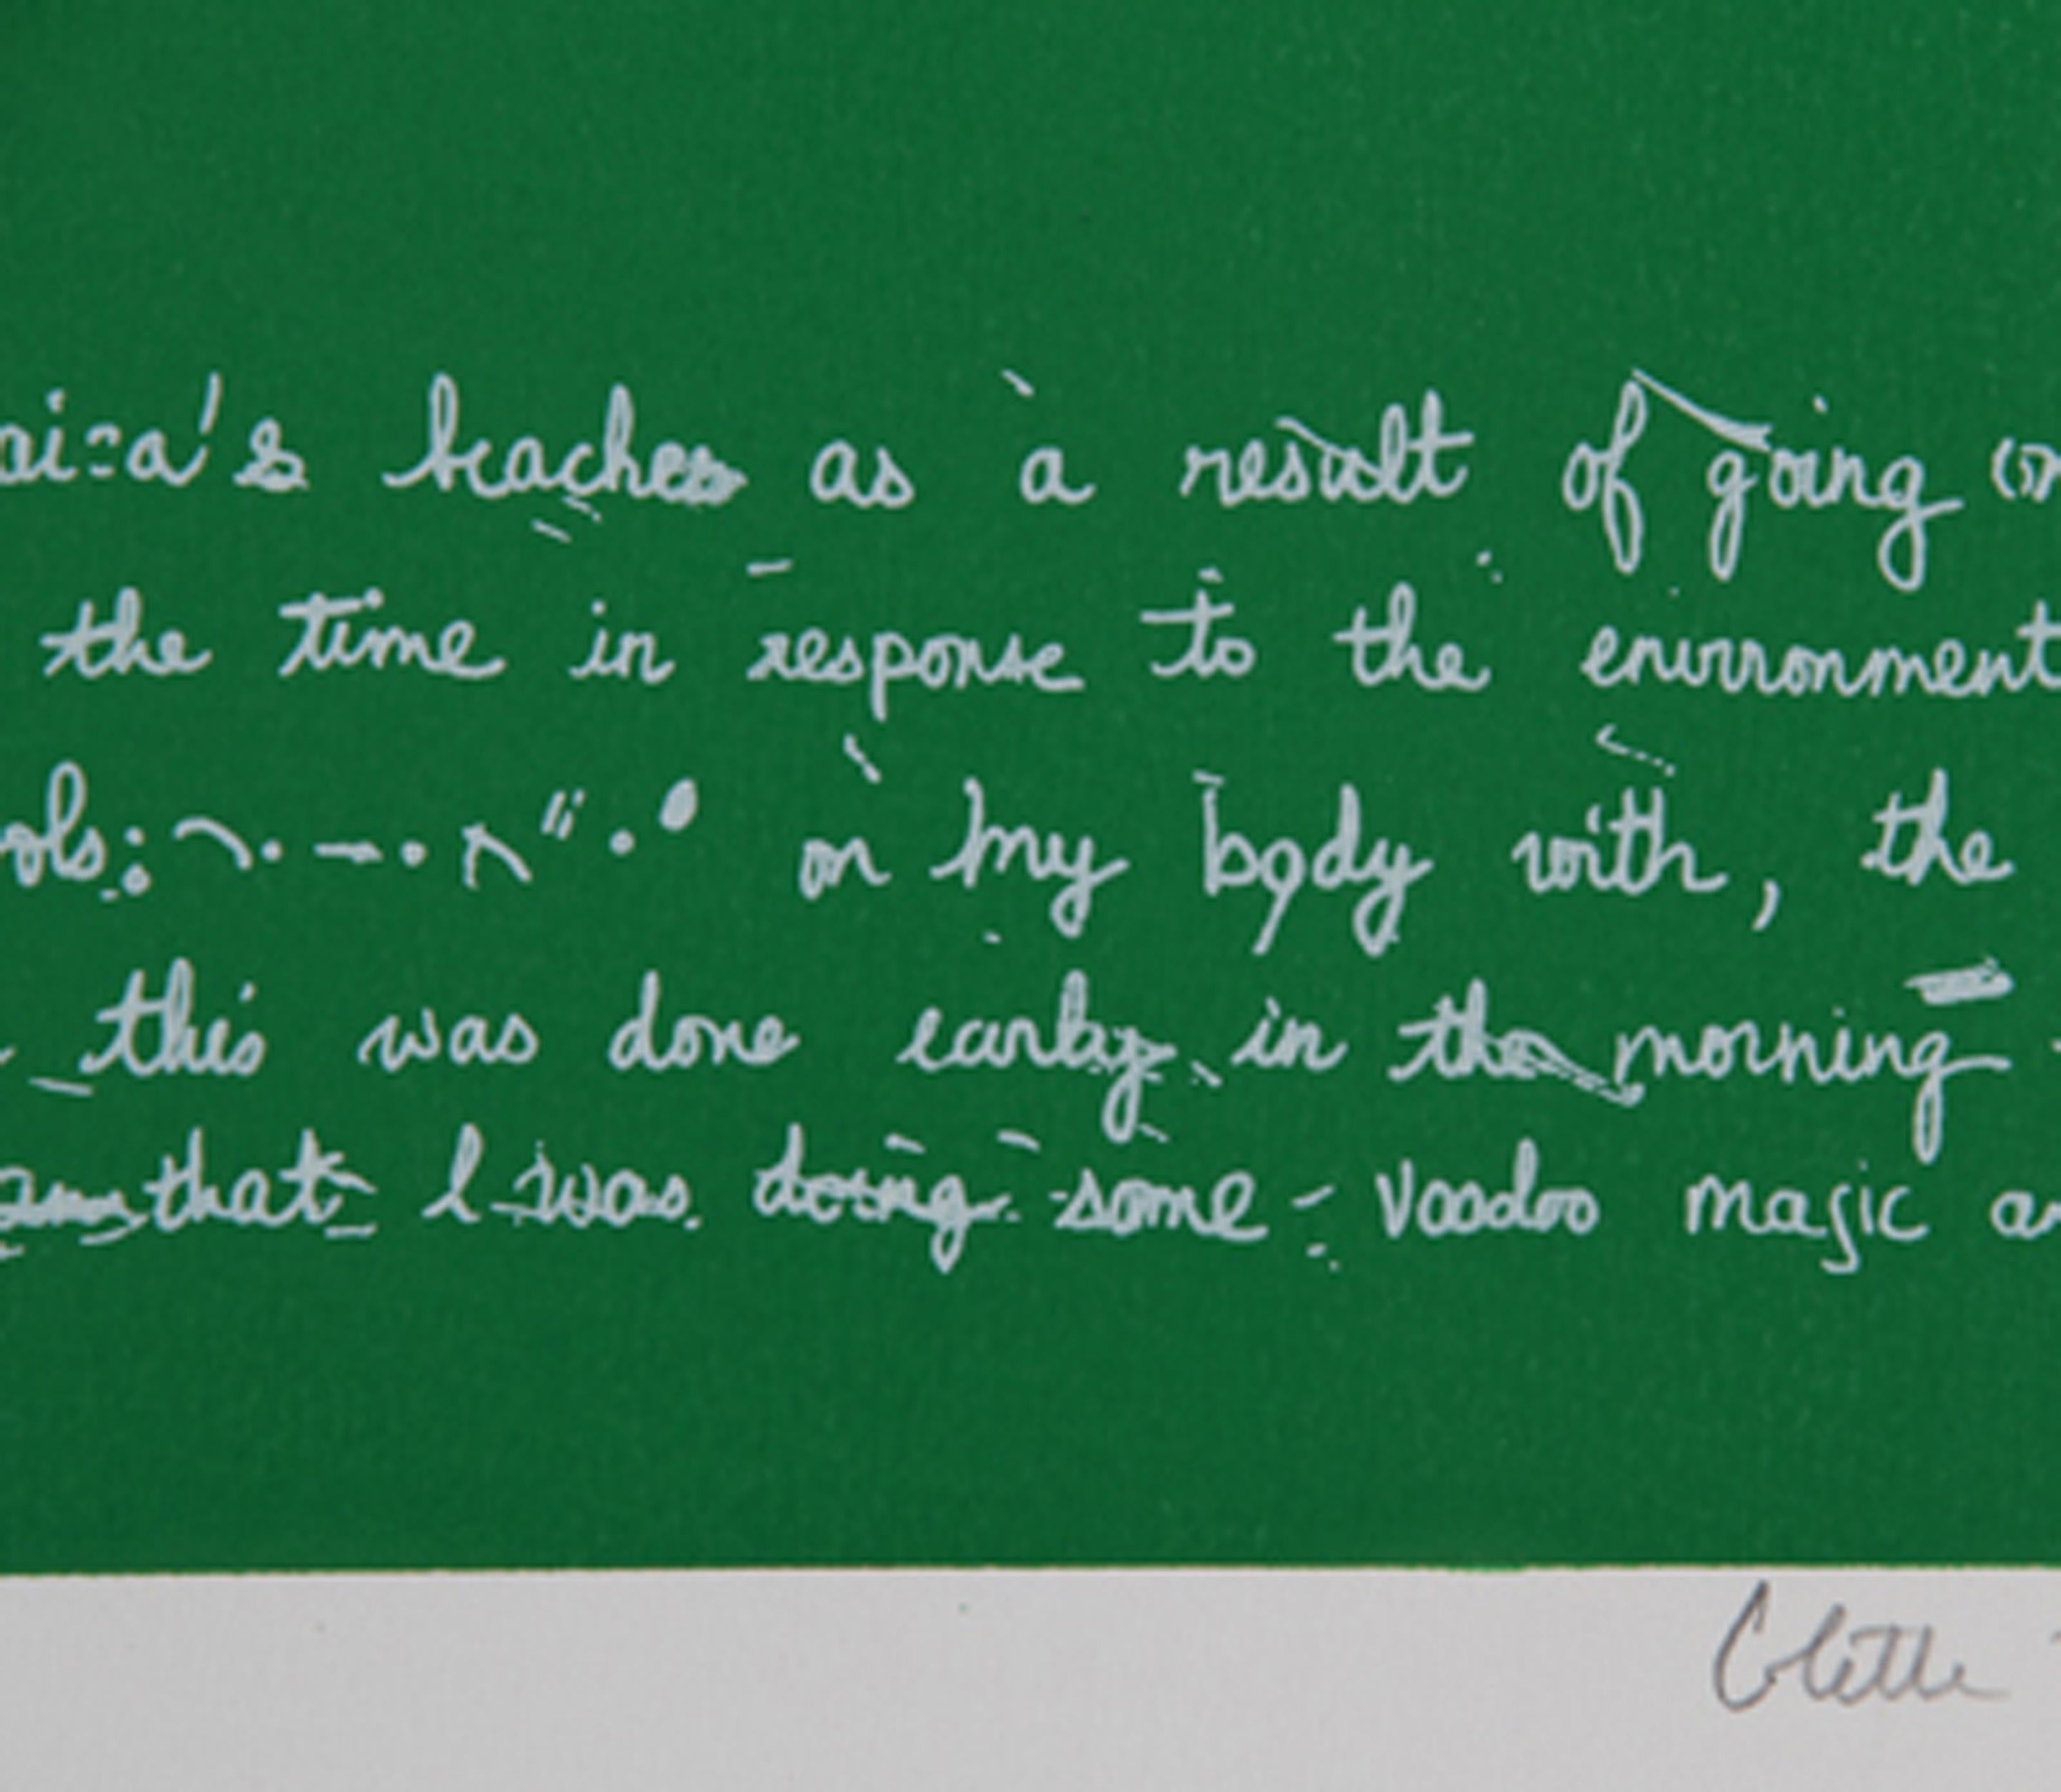 beaches as a result of going
the time in response to the environment
ols: on my body with, the
this was done early in the morning
that I was doing some voodoo magic
Colette